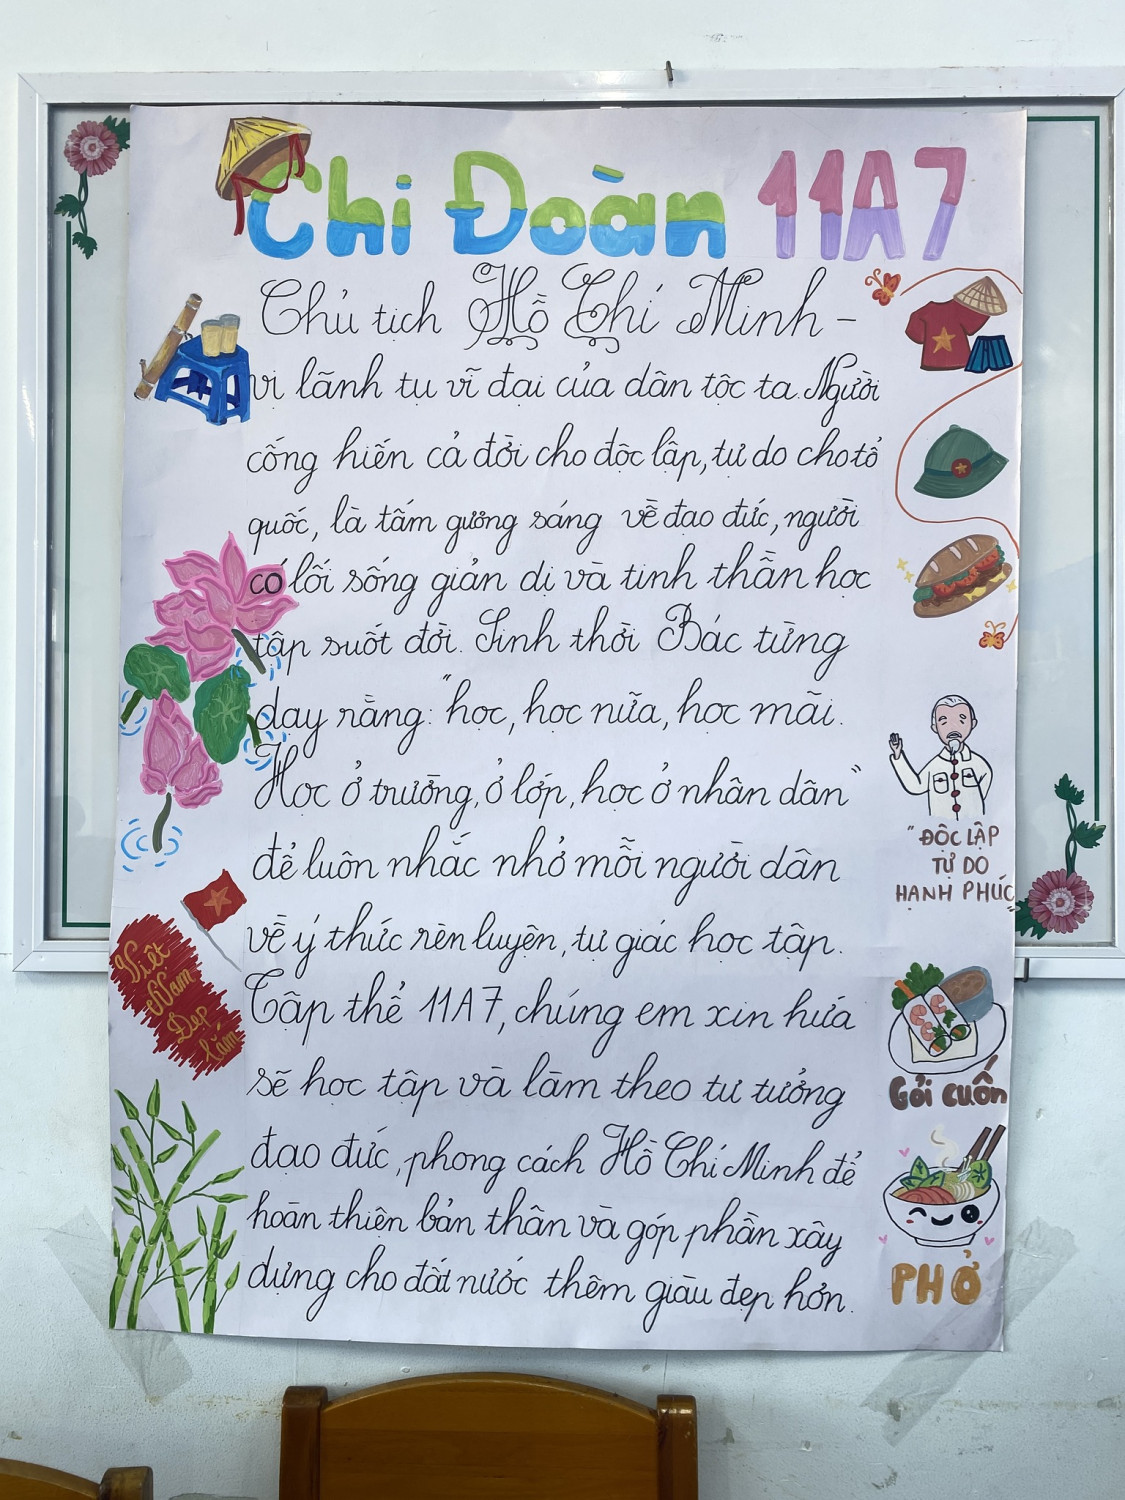 Chi Đoàn 11A7
Chủ tịch Hồ Chí Minh -
vị lãnh tụ vĩ đại của dân tộc ta. Người
cống hiến cả đời cho độc lập, tự do cho tổ
quốc, là tấm gương sáng về đạo đức, người
có lối sống giản dị và tinh thần học
tập suốt đời. Sinh thời Bác từng
dạy rằng: "học, học nữa, học mãi.
Học ở trường, ở lớp, học ở nhân dân"
để luôn nhắc nhở mỗi người dân
về ý thức rèn luyện, tự giác học tập.
Tập thể 11A7, chúng em xin hứa
sẽ học tập và làm theo tư tưởng
đạo đức, phong cách Hồ Chí Minh để
hoàn thiện bản thân và góp phần xây
dựng cho đất nước thêm giàu đẹp hơn.
Việt
Nam
Đẹp
lắm
"ĐỘC LẬP
TỰ DO
HẠNH PHÚC"
Gỏi cuốn
PHỞ